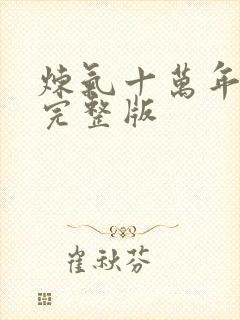 煉氣十萬年
完整版
崔秋芬